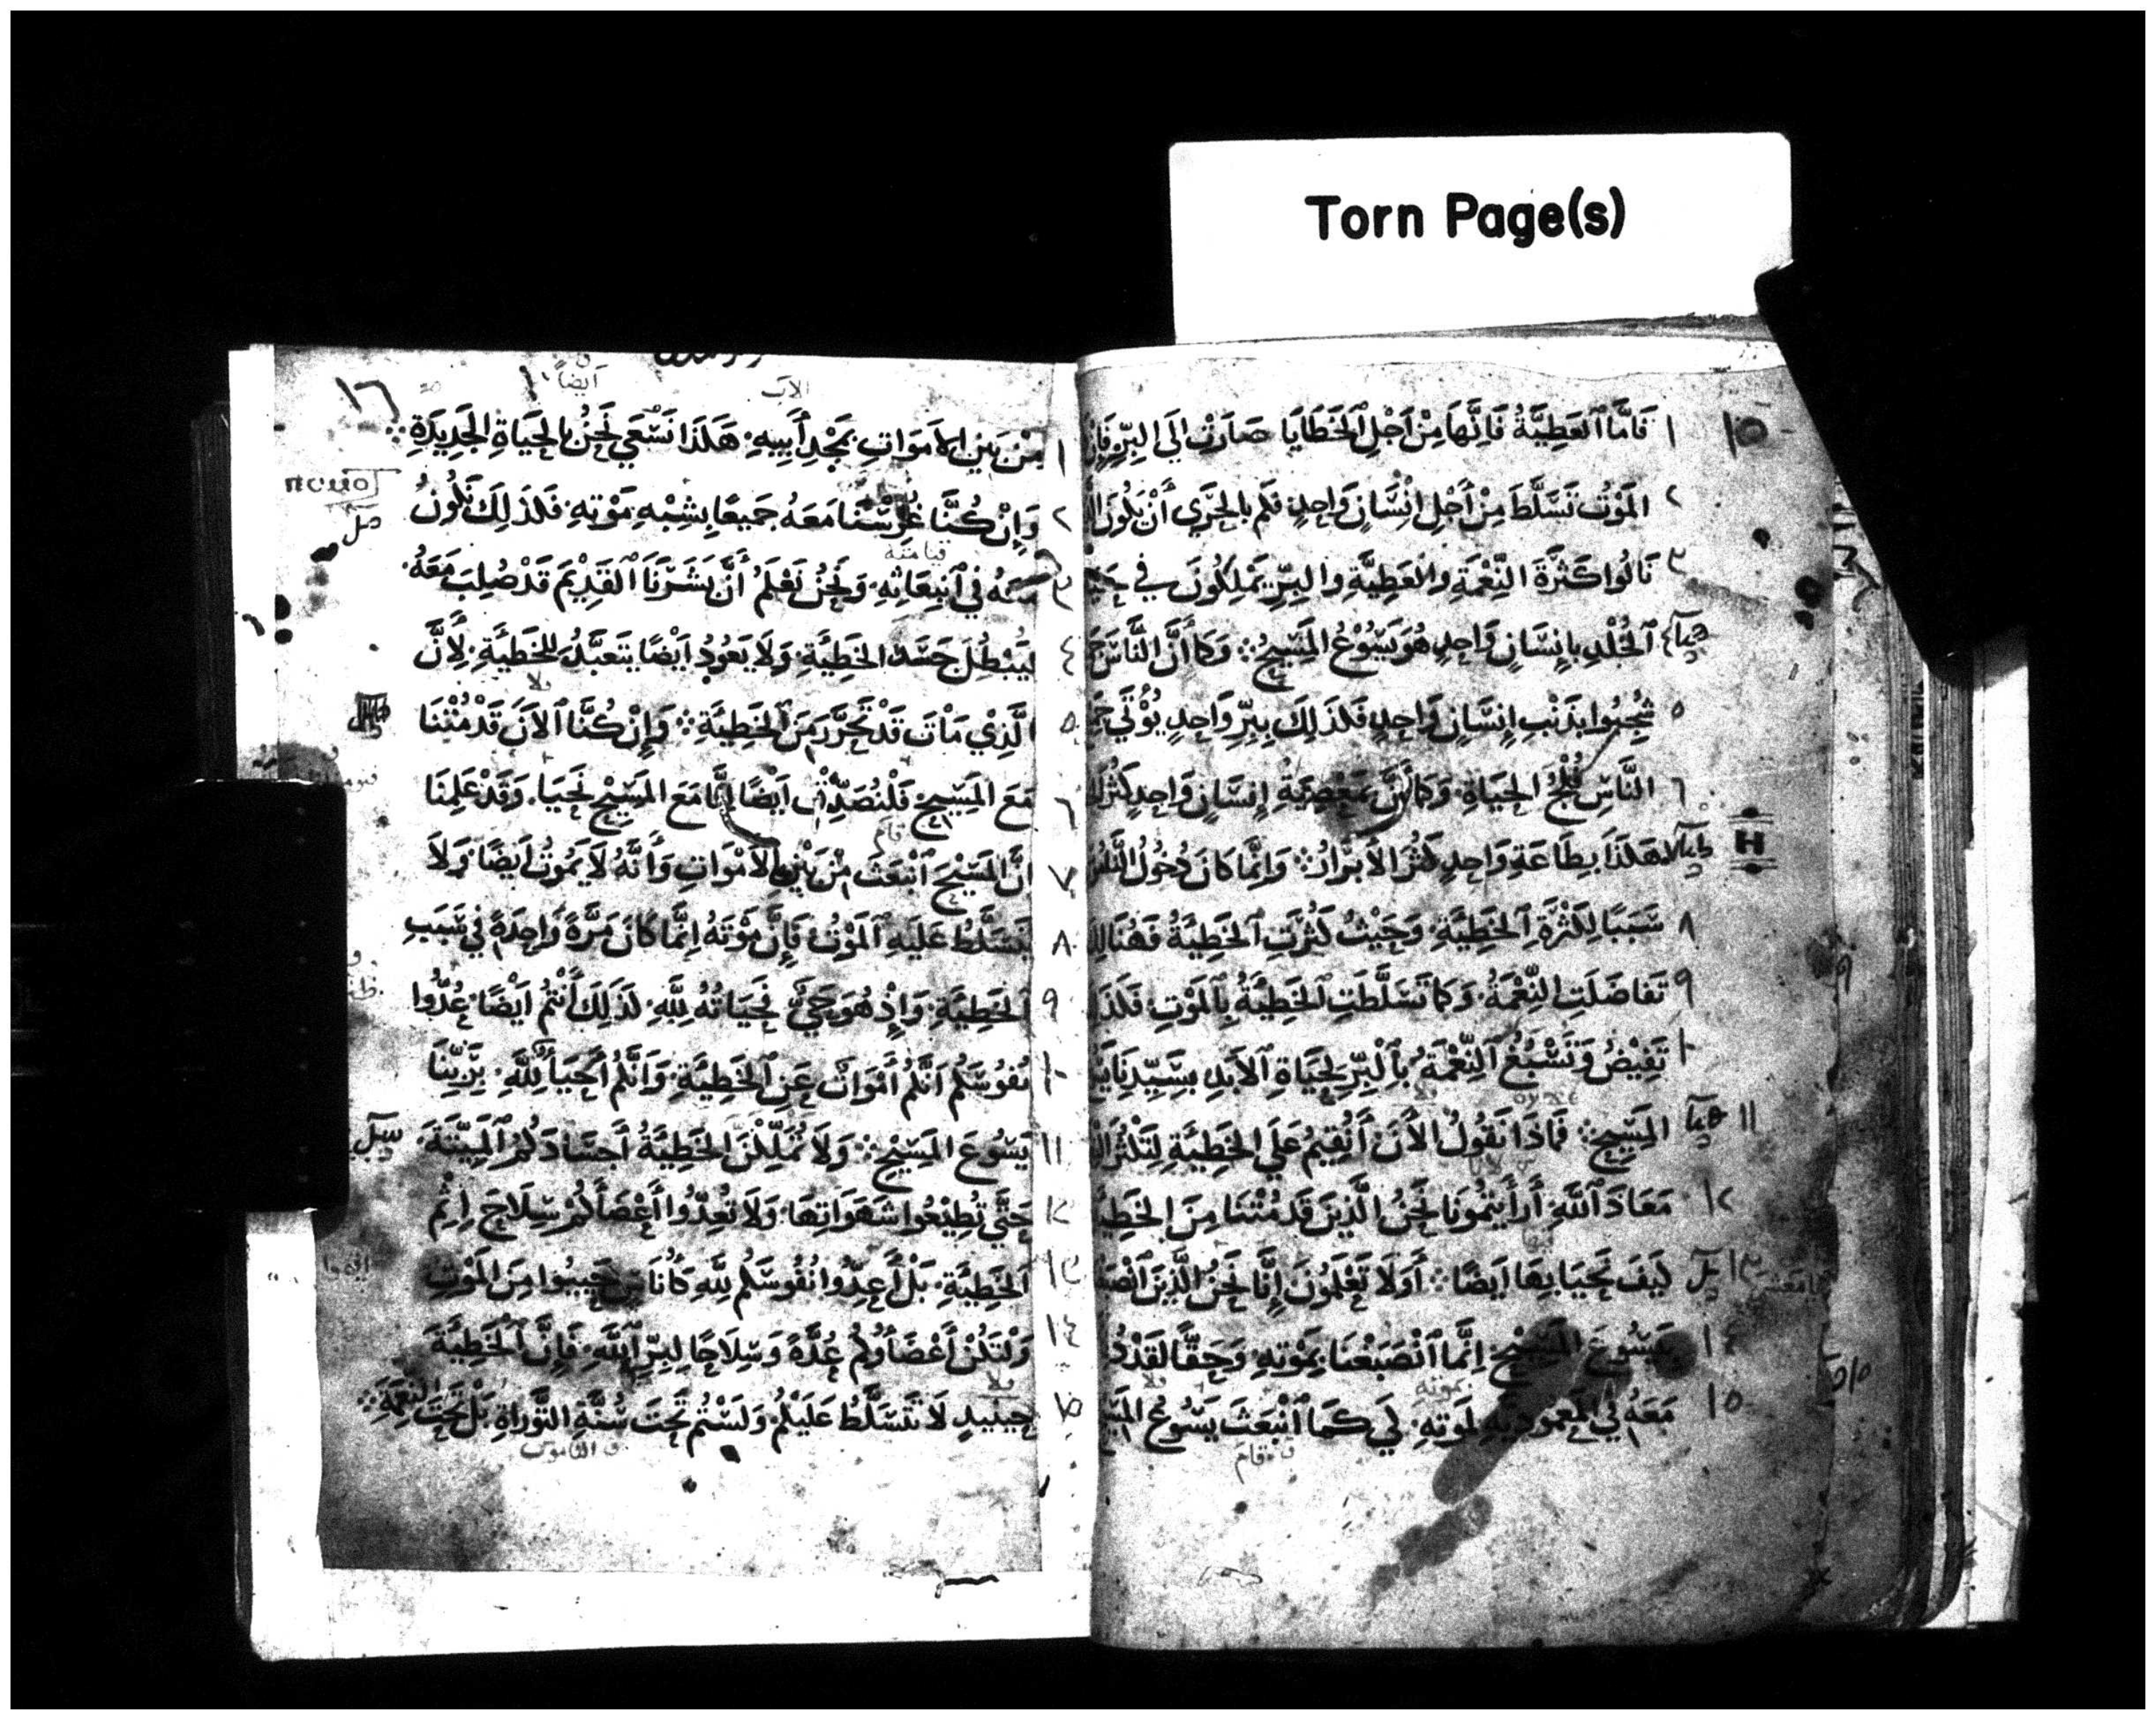 Torn Page(s)
١٥
١ فَامَّا ٱلعَطِيَّةُ فَاِنَّهَا مِنْ اَجْلِ ٱلخَطَايَا صَارَتْ اِلَي البِرِّ فَاِنْ
٢ المَوْتُ تَسَلَّطَ مِنْ أَجْلِ اِنْسَانٍ وَاحِدٍ فَكَم بِالحَرَي أَنْ يَكُونَ
٣ نَالُوا كَثْرَةَ النِّعْمَةِ وَالعَطِيَّةِ وَالبِرِّ يَمْلِكُونَ فِي
٤ ٱلخُلْدِ بِاِنْسَانٍ وَاحِدٍ هُوَ يَسُوْعُ المَسِيحُ وَكَمَا أَنَّ النَّاسَ
٥ شُجِبُوا بِذَنْبِ اِنْسَانٍ وَاحِدٍ فَكَذَلِكَ بِبِرِّ وَاحِدٍ يُؤْتَي
٦ النَّاسِ فُلْجُ الحَيَاةِ وَكَمَا أَنَّ بِمَعْصِيَةِ اِنْسَانٍ وَاحِدٍ كَثُرَ
H
٧ هَكَذَا بِطَاعَةِ وَاحِدٍ كَثُرَ الأَبْرَارُ وَاِنَّمَا كَانَ دُخُوْلُ
٨ سَبَبًا لِكَثْرَةِ ٱلخَطِيَّةِ وَحَيْثُ كَثُرَتِ ٱلخَطِيَّةُ فَهُنَالِكَ
٩ تَفَاضَلَتِ النِّعْمَةُ وَكَمَا تَسَلَّطَتِ ٱلخَطِيَّةُ بِالْمَوْتِ فَكَذَ
١٠ تَفِيْضُ وَتَسْبُغُ ٱلنِّعْمَةُ بِٱلْبِرِّ لِحَيَاةِ ٱلأَبَدِ بِسَيِّدِنَا
١١ المَسِيحِ فَمَاذَا نَقُولُ الأَنَ أَنُقِيمُ عَلَي الخَطِيَّةِ لِتَكْثُرَ
١٢ مَعَاذَ ٱللَّهِ أَرَأَيتُمُونَا نَحْنُ الَّذِينَ قَد مُتْنَا مِنَ الخَطِيَّةِ
١٣ كَيفَ نَحْيَا بِهَا اَيضًا أَوَلَا تَعْلَمُونَ اِنَّا نَحْنُ الَّذِينَ
١٤ بِيَسُوعَ المَسِيْحِ اِنَّمَا ٱنْصَبَغْنَا بِمَوْتِهِ وَحَقًّا لَقَدْ
١٥ مَعَهُ فِي المَعمُودِيَّةِ لِمَوتِهِ لِكَي كَمَا ٱنْبَعَثَ يَسُوعُ
قام
١٦
الاب
أيضاً
١ مِنْ بَيْنِ الأَمْوَاتِ بِمَجْدِ أَبِيهِ هَكَذَا نَسْعَي نَحْنُ بِالحَيَاةِ الجَدِيدَةِ
٢ وَاِنْ كُنَّا غُرِسْنَا مَعَهُ جَمِيعًا بِشِبْهِ مَوْتِهِ فَكَذَلِكَ نَكُونُ
قيامته
٣ مَعَهُ فِي ٱنبِعَاثِهِ وَنَحْنُ نَعْلَمُ أَنَّ بَشَرَنَا ٱلقَدِيْمَ قَدْ صُلِبَ مَعَهُ
٤ لِيُبْطِلَ جَسَدَ الخَطِيَّةِ وَلَا يَعُودُ اَيْضًا يَتَعَبَّدُ لِلخَطِيَّةِ لِأَنَّ
٥ الَّذِي مَاتَ قَدْ تَحَرَّرَ مِنَ ٱلخَطِيَّةِ وَاِنْ كُنَّا ٱلأَنَ قَدْ مُتْنَا
٦ مَعَ المَسِيْحِ فَلْنُصَدِّقْ اَيْضًا اِنَّا مَعَ المَسِيْحِ نَحْيَا وَقَدْ عَلِمْنَا
قام
٧ اَنَّ المَسِيْحَ ٱنْبَعَثَ مِنْ بَيْنِ الأَمْوَاتِ وَأَنَّهُ لَا يَمُوتُ اَيضًا وَلَا
٨ يَتَسَلَّطُ عَلَيهِ ٱلمَوْتُ فَاِنَّ مَوْتَهُ اِنَّمَا كَانَ مَرَّةً وَاحِدَةً فِي سَبَبِ
٩ ٱلخَطِيَّةِ وَاِذْ هُوَ حَيٌّ فَحَيَاتُهُ لِلَّهِ كَذَلِكَ أَنْتُمْ اَيْضًا عُدُّوا
١٠ نُفُوْسَكُمْ اَنَّكُمْ أَمْوَاتٌ عَنِ ٱلخَطِيَّةِ وَاَنَّكُمْ أَحْيَاءٌ لِلَّهِ بِرَبِّنَا
١١ يَسُوْعَ المَسِيْحِ وَلَا تُمَلِّكْنَ الخَطِيَّةُ أَجسَادَكُمُ المَيِّتَةَ
١٢ حَتَّي تُطِيْعُوا شَهَوَاتِهَا وَلَا تُعِدُّوا أَعْضَأَكُمْ سِلَاحَ اِثْمِ
١٣ الخَطِيَّةِ بَلْ أَعِدُّوا نُفُوسَكُم لِلَّهِ كَأُنَاسٍ حَيِيُوا مِنَ المَوْتِ
١٤ وَلْتَكُنْ أَعْضَأُوكُم عُدَّةً وَسِلَاحًا لِبِرِّ ٱللَّهِ فَاِنَّ ٱلخَطِيَّةَ
١٥ حِينَيِذٍ لَا تَتَسَلَّطُ عَلَيْكُمْ وَلَسْتُمْ تَحتَ سُنَّةِ التَّوْرَاةِ بَلْ تَحتَ النِّعمَةِ
الناموس